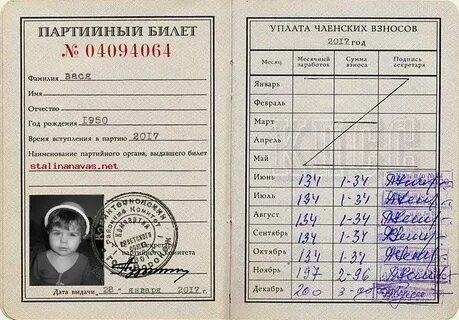 ПАРТИЙНЫЙ БИЛЕТ
№ 04094064
Фамилия Вася
Имя
Отчество
Год рождения 1950
Время вступления в партию 2017
Наименование партийного органа, выдавшего билет
stalinanavas.net
Дата выдачи 28 января 2017 г.
УПЛАТА ЧЛЕНСКИХ ВЗНОСОВ
2017 год
Месяц Месячный заработок Сумма взноса Подпись секретаря
Январь
Февраль
Март
Апрель
Май
КПСС
Июнь 134 1-34
Июль 134 1-34
Август 134 1-34
Сентябрь 134 1-34
Октябрь 134 1-34
Ноябрь 197 2-96
Декабрь 200